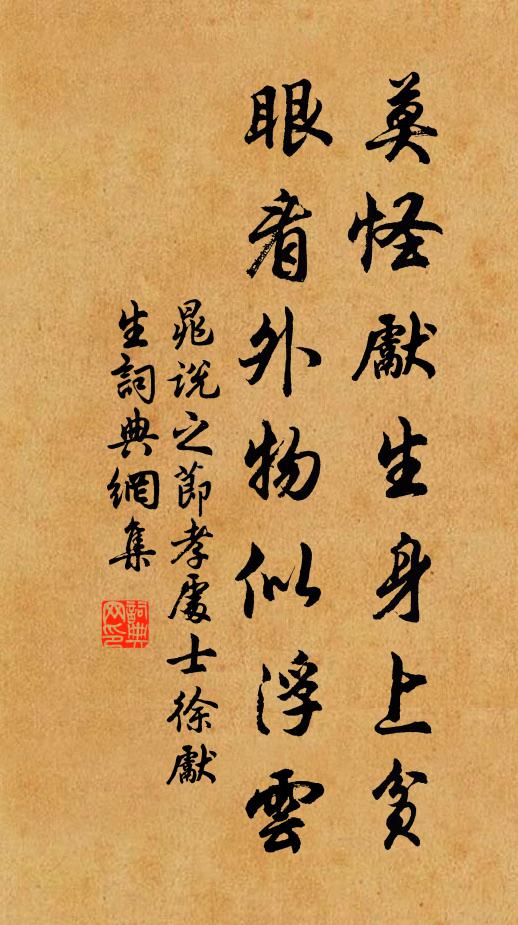 莫怪獻生身上貧
眼看外物似浮雲
晁說之節孝處士徐獻
生詞典網集
詞典網印